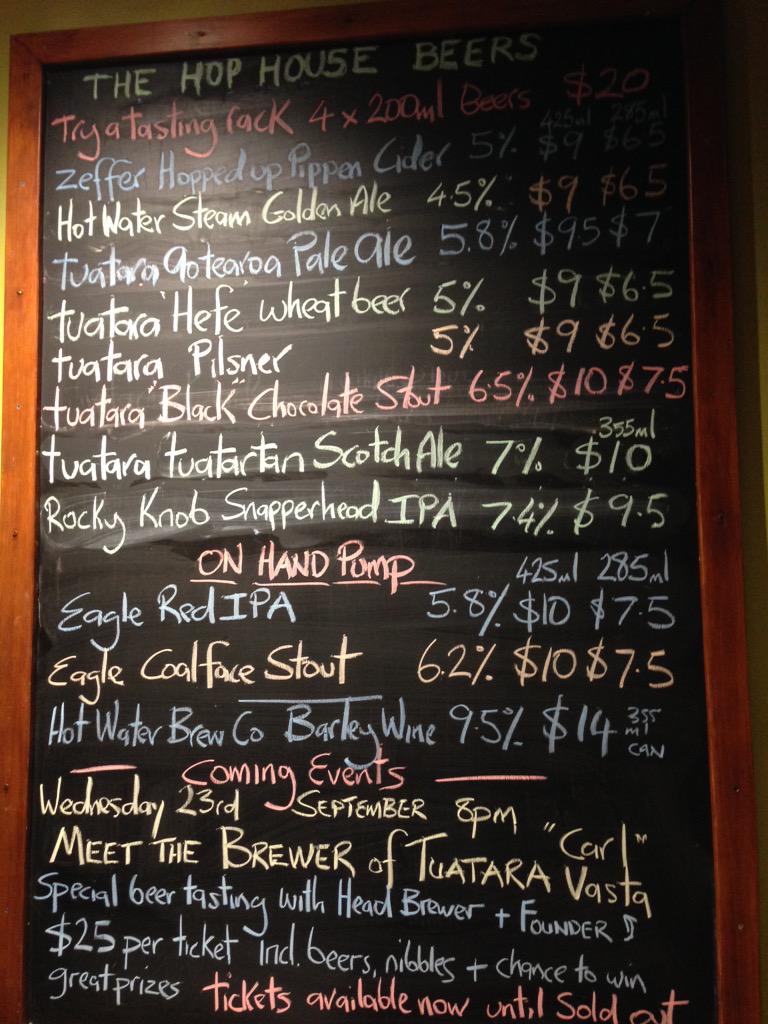 THE HOP HOUSE BEERS
Try a tasting rack 4 x 200ml Beers $20
425ml 285ml
Zeffer Hopped up Pippen Cider 5% $9 $6.5
Hot Water Steam Golden Ale 4.5% $9 $6.5
tuatara aotearoa Pale ale 5.8% $9.5 $7
tuatara "Hefe" wheat beer 5% $9 $6.5
tuatara Pilsner 5% $9 $6.5
tuatara "Black" Chocolate Stout 6.5% $10 $7.5
355ml
tuatara tuatartan Scotch Ale 7% $10
Rocky Knob Snapperhead IPA 7.4% $9.5
ON HAND Pump 425ml 285ml
Eagle Red IPA 5.8% $10 $7.5
Eagle Coalface Stout 6.2% $10 $7.5
Hot Water Brew Co Barley Wine 9.5% $14 355 ml CAN
Coming Events
Wednesday 23rd SEPTEMBER 8pm
MEET THE BREWER of TUATARA "Carl" Vasta
Special beer tasting with Head Brewer + FOUNDER
$25 per ticket incl. beers, nibbles + chance to win
great prizes tickets available now until Sold out